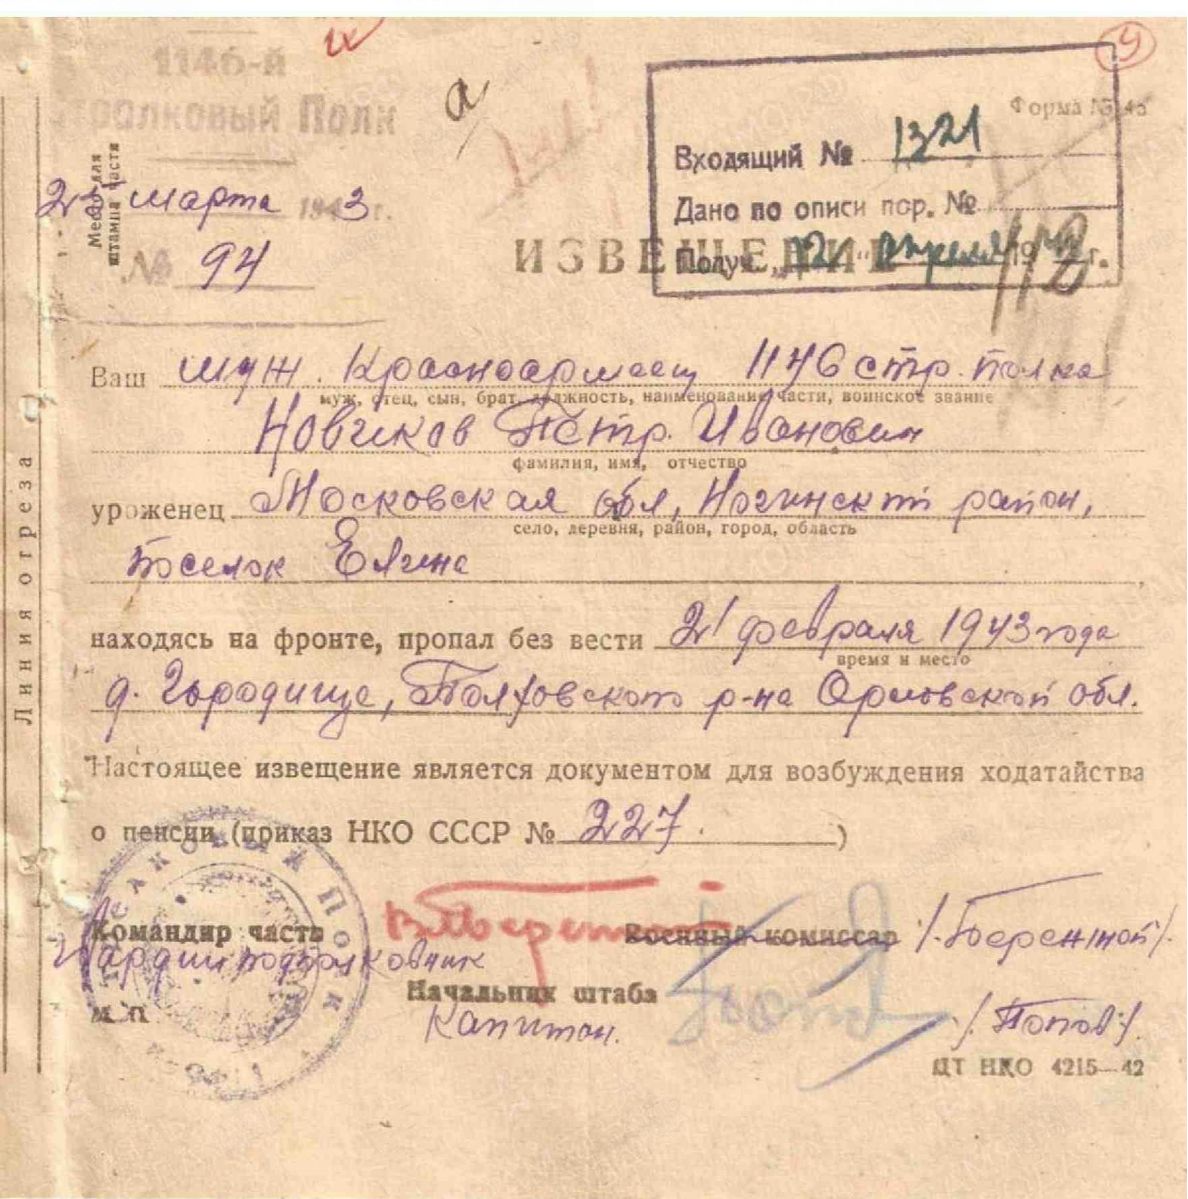 1146-й
Стрелковый Полк
Место для штампа части
25 марта 1943 г.
№ 94
а
9
Форма № 45
Входящий № 1321
Дано по описи пор. №
Получ. „12" апреля 1943 г.
ИЗВЕЩЕНИЕ
Ваш муж. Красноармеец 1146 стр. полка
муж, отец, сын, брат, должность, наименование части, воинское звание
Новиков Пётр. Иванович
фамилия, имя, отчество
уроженец Московская обл, Ногинский район,
село, деревня, район, город, область
Поселок Елгина
находясь на фронте, пропал без вести 21 февраля 1943 года
время и место
д. Городище, Болховского р-на Орловской обл.
Настоящее извещение является документом для возбуждения ходатайства
о пенсии (приказ НКО СССР № 227. )
Командир части
Военный комиссар /. Бережной /.
Гвардии подполковник
Начальник штаба
Капитан. /. Попов /.
М. П.
ЦТ НКО 4215—42
Линия отреза